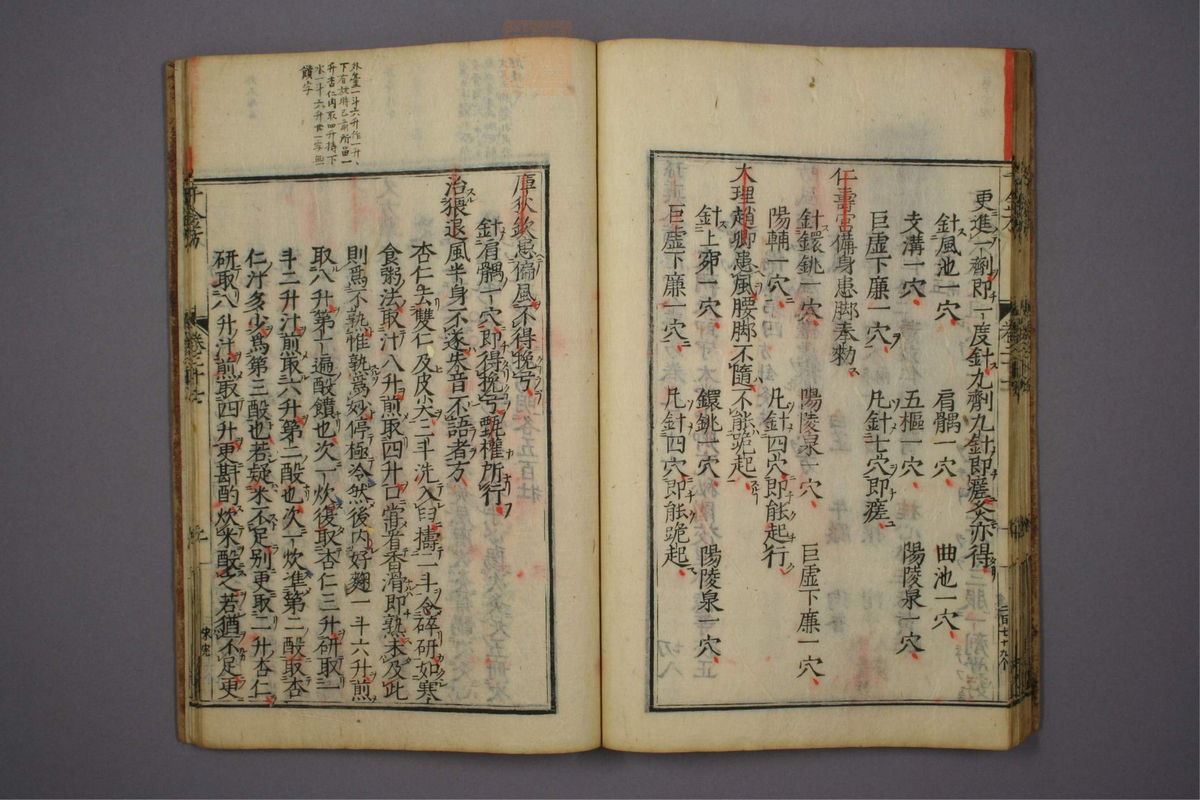 更進一劑即一度針九劑九針即瘥灸亦得
針風池一穴 肩髃一穴 曲池一穴
支溝一穴 五樞一穴 陽陵泉一穴
巨虚下廉一穴 凡針七穴即瘥
仁壽宮備身患脚奉勑
針鐶銚一穴 陽陵泉一穴 巨虚下廉一穴
陽輔一穴 凡針四穴即能起行
大理趙卿患風腰脚不隨不能跪起
針上窌一穴 鐶銚一穴 陽陵泉一穴
巨虚下廉一穴 凡針四穴即能跪起
庫狄欽患偏風不得挽弓
針肩髃一穴即得挽弓甄權所行
治猥退風半身不遂失音不語者方
杏仁去雙仁及皮尖三斗洗入臼擣二斗令碎研如寒
食粥法取汁八升煎取四升口嘗看香滑即熟未及此
則爲不熟惟熟爲妙停極冷然後内好麹一斗六升煎
取八升第一遍酘饙也次一炊復取杏仁三升研取一
斗二升汁煎取六升第二酘也次一炊準第二酘取杏
仁汁多少爲第三酘也若疑米不足别更取二升杏仁
研取八升汁煎取四升更斟酌炊米酘之若猶不足更
外臺一斗六升作一升、
下有放時已前所留一
升杏仁内取四升持下
水一斗六升廿一字無
饙字
千金方
卷之二十七